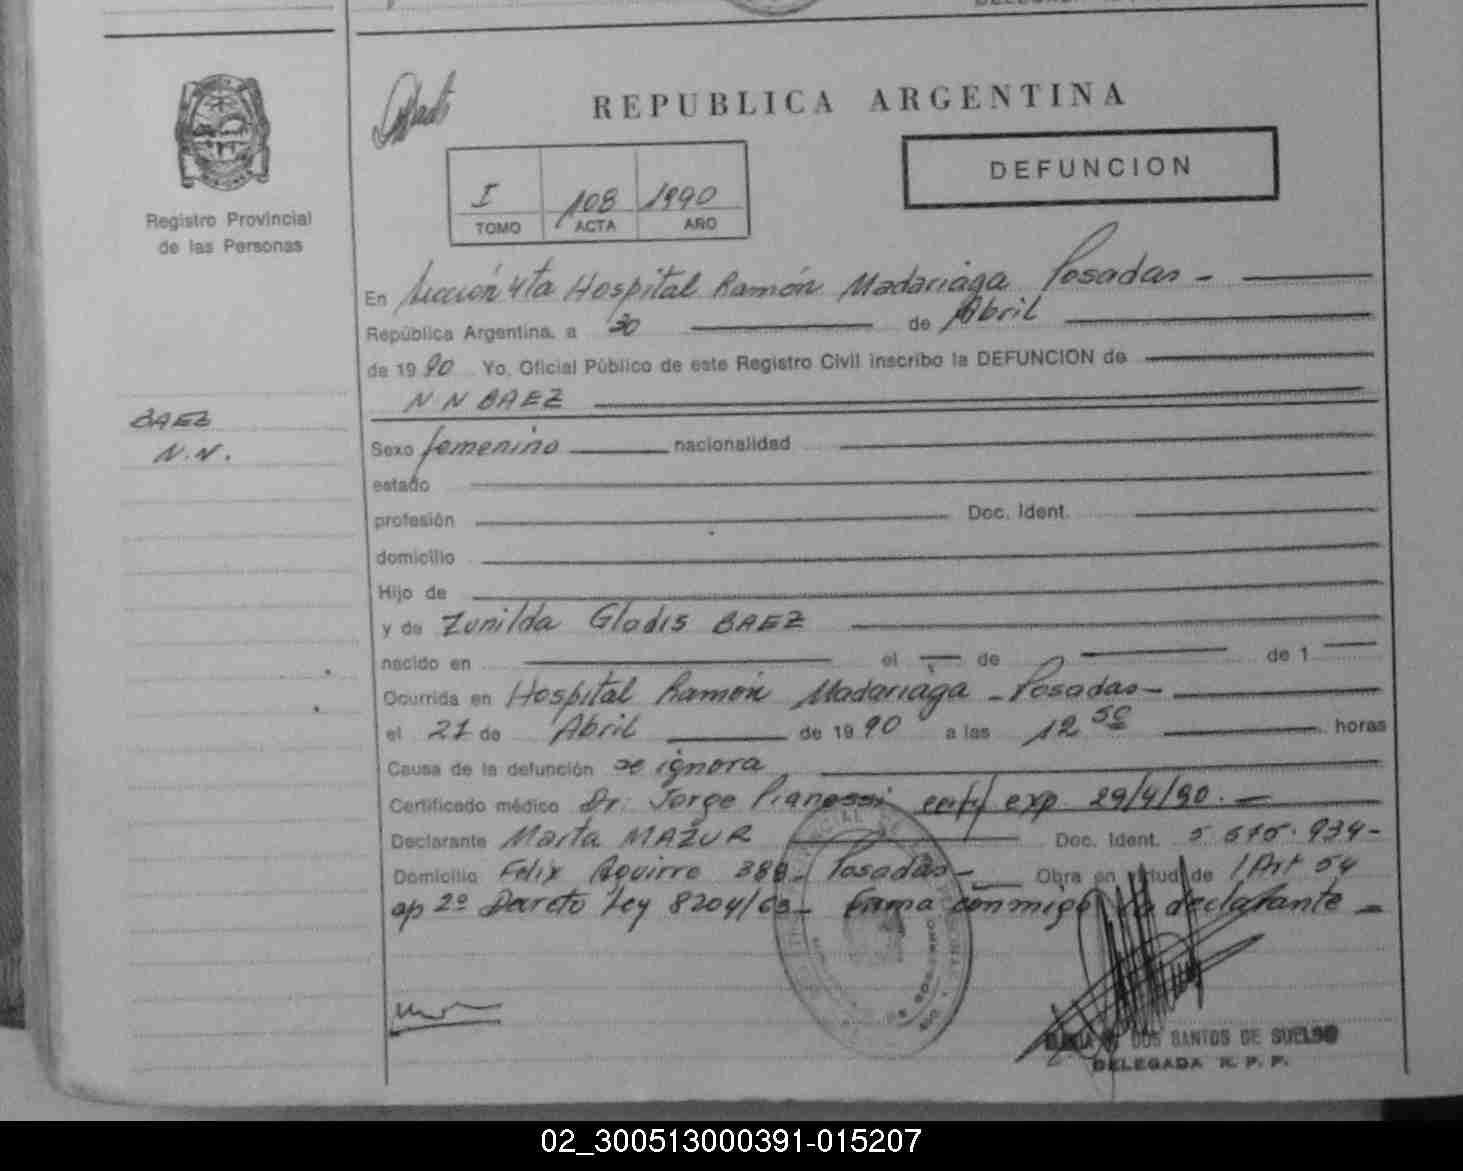 REPUBLICA ARGENTINA
DEFUNCION
I 108 1990
TOMO ACTA AÑO
Registro Provincial
de las Personas
En Sección 4ta Hospital Ramón Madariaga Posadas -
República Argentina, a 30 de Abril
de 1990 Yo, Oficial Público de este Registro Civil inscribo la DEFUNCION de
N N BAEZ
BAEZ
N.N.
Sexo femenino nacionalidad
estado
profesión Doc. Ident.
domicilio
Hijo de
y de Zunilda Gladis BAEZ
nacido en el de de 1
Ocurrida en Hospital Ramón Madariaga - Posadas -
el 21 de Abril de 1990 a las 12 50 horas
Causa de la defunción se ignora
Certificado médico Dr. Jorge Pianessi exp. 29/4/90. -
Declarante Marta MAZUR Doc. Ident.
Domicilio Felix Aguirre Posadas - Obra en virtud de Art 54
ap 2º Decreto Ley 8204/63 - Firma conmigo la declarante -
DOS SANTOS DE
DELEGADA R. P. P.
02_300513000391-015207